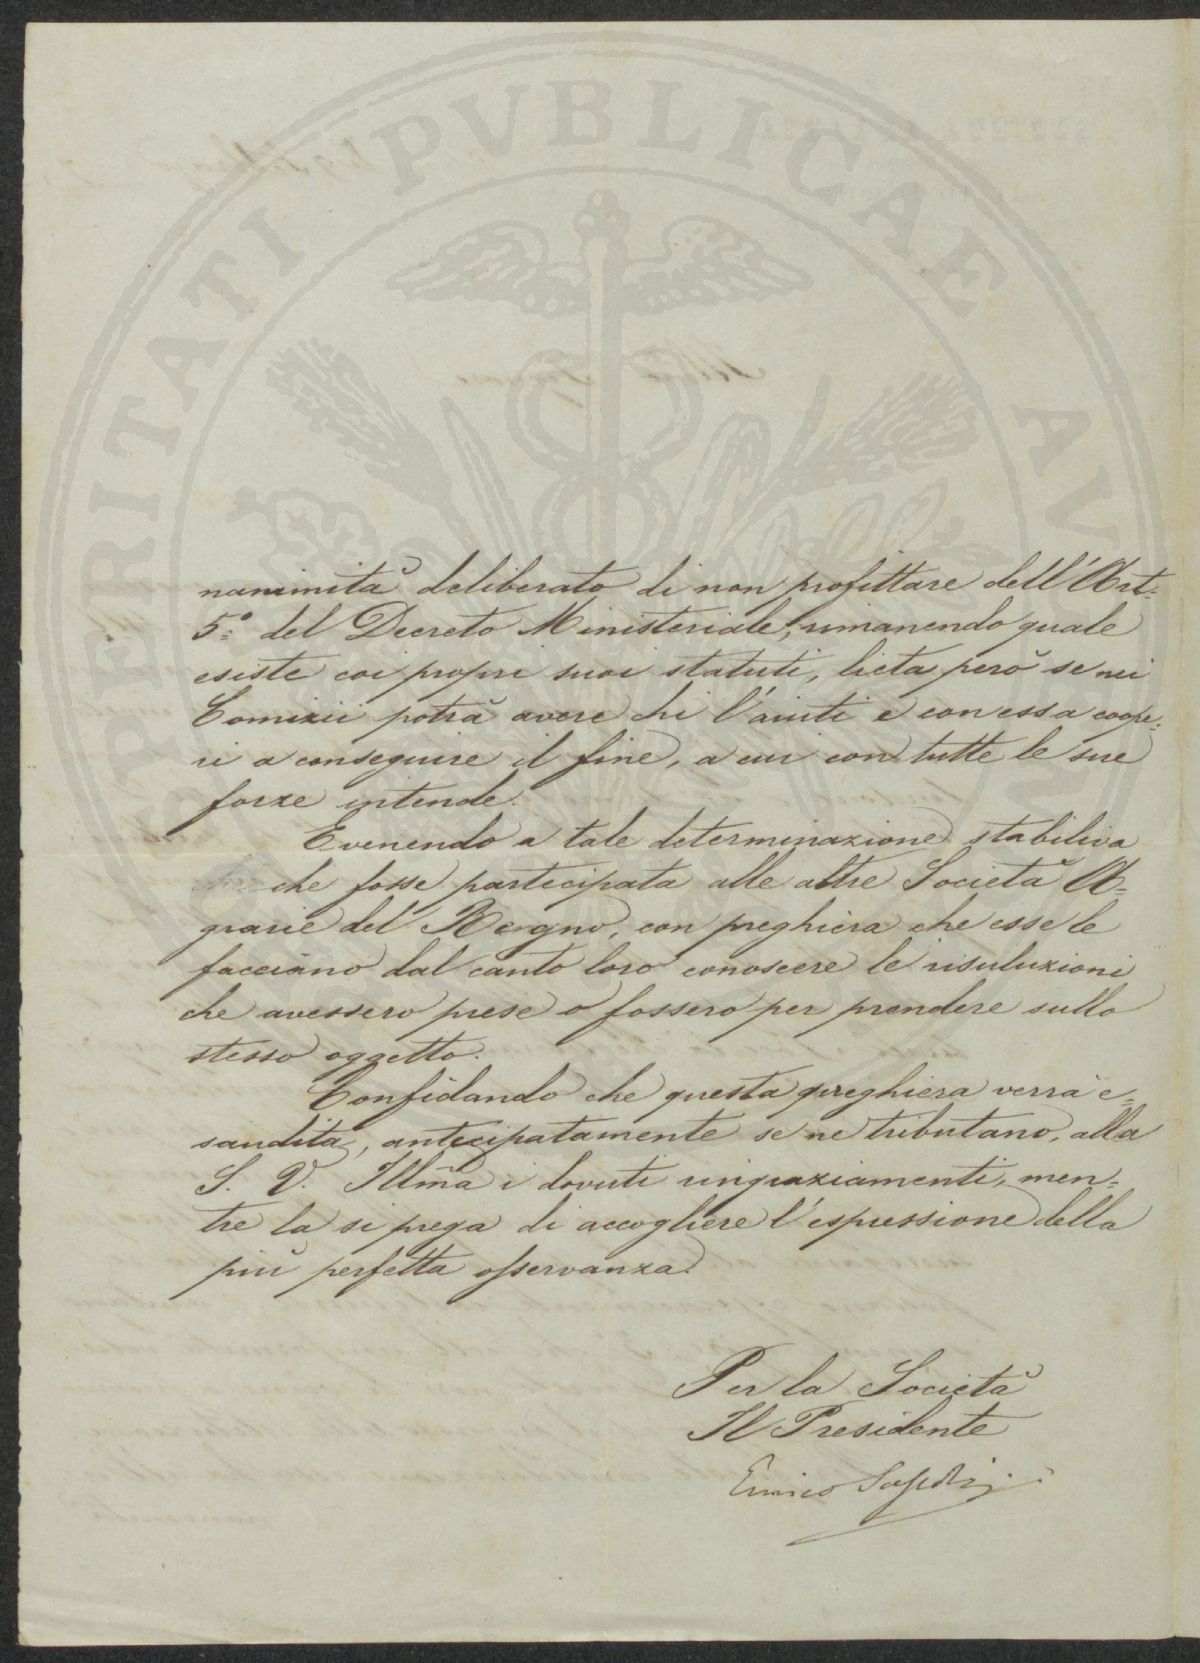 PROSPERITATI PVBLICAE AV
nanimità deliberato di non profittare dell'Art=
5.º del Decreto Ministeriale, rimanendo quale
esiste coi propri suoi statuti, lieta però se nei
Comizii potrà avere chi l'aiuti e con essa coope=
ri a conseguire il fine, a cui con tutte le sue
forze intende.
E venendo a tale determinazione stabiliva
che fosse partecipata alle altre Società A=
grarie del Regno, con preghiera che esse le
facciano dal canto loro conoscere le risuluzioni
che avessero prese o fossero per prendere sullo
stesso oggetto.
Confidando che questa preghiera verrà e=
saudita, antecipatamente se ne tributano, alla
S. V. Illma i dovuti ringraziamenti, men=
tre la si prega di accogliere l'espressione della
più perfetta osservanza.
Per la Società
Il Presidente
Enrico